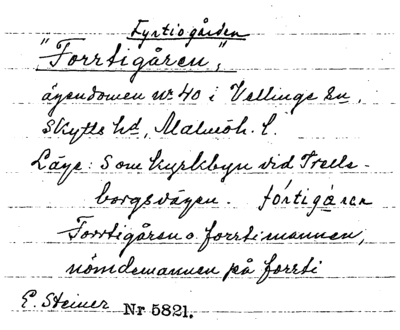 Fyrtiogården
"Forrtigåren,"
ägendomen nr 40 i Vellinge sn,
Skytts hd, Malmöh. l.
Läge: som kyrkbyn vid Trelle-
borgsvägen. fórtigåren
Forrtigåren o. forrtimannen,
nämdemannen på forrti
E. Steiner Nr 5821.